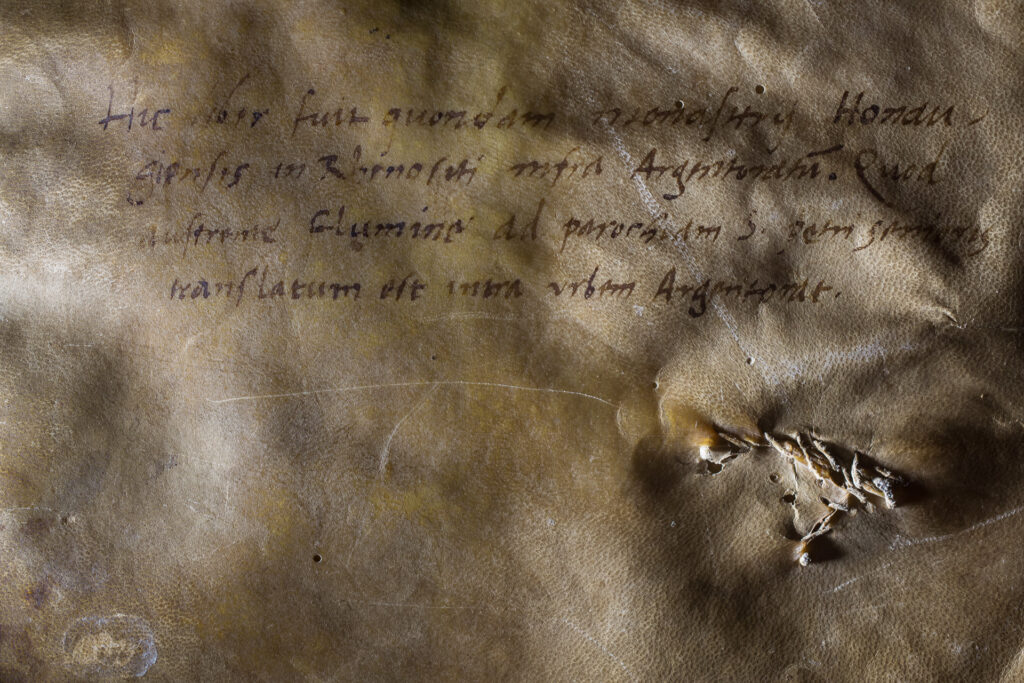 Hic liber fuit quondam monasterij Honau-
giensis in Rhenoseti infra Argentoratū. Quod
ad parochiam S. petri senioris
translatum est intra urbem Argentorat.